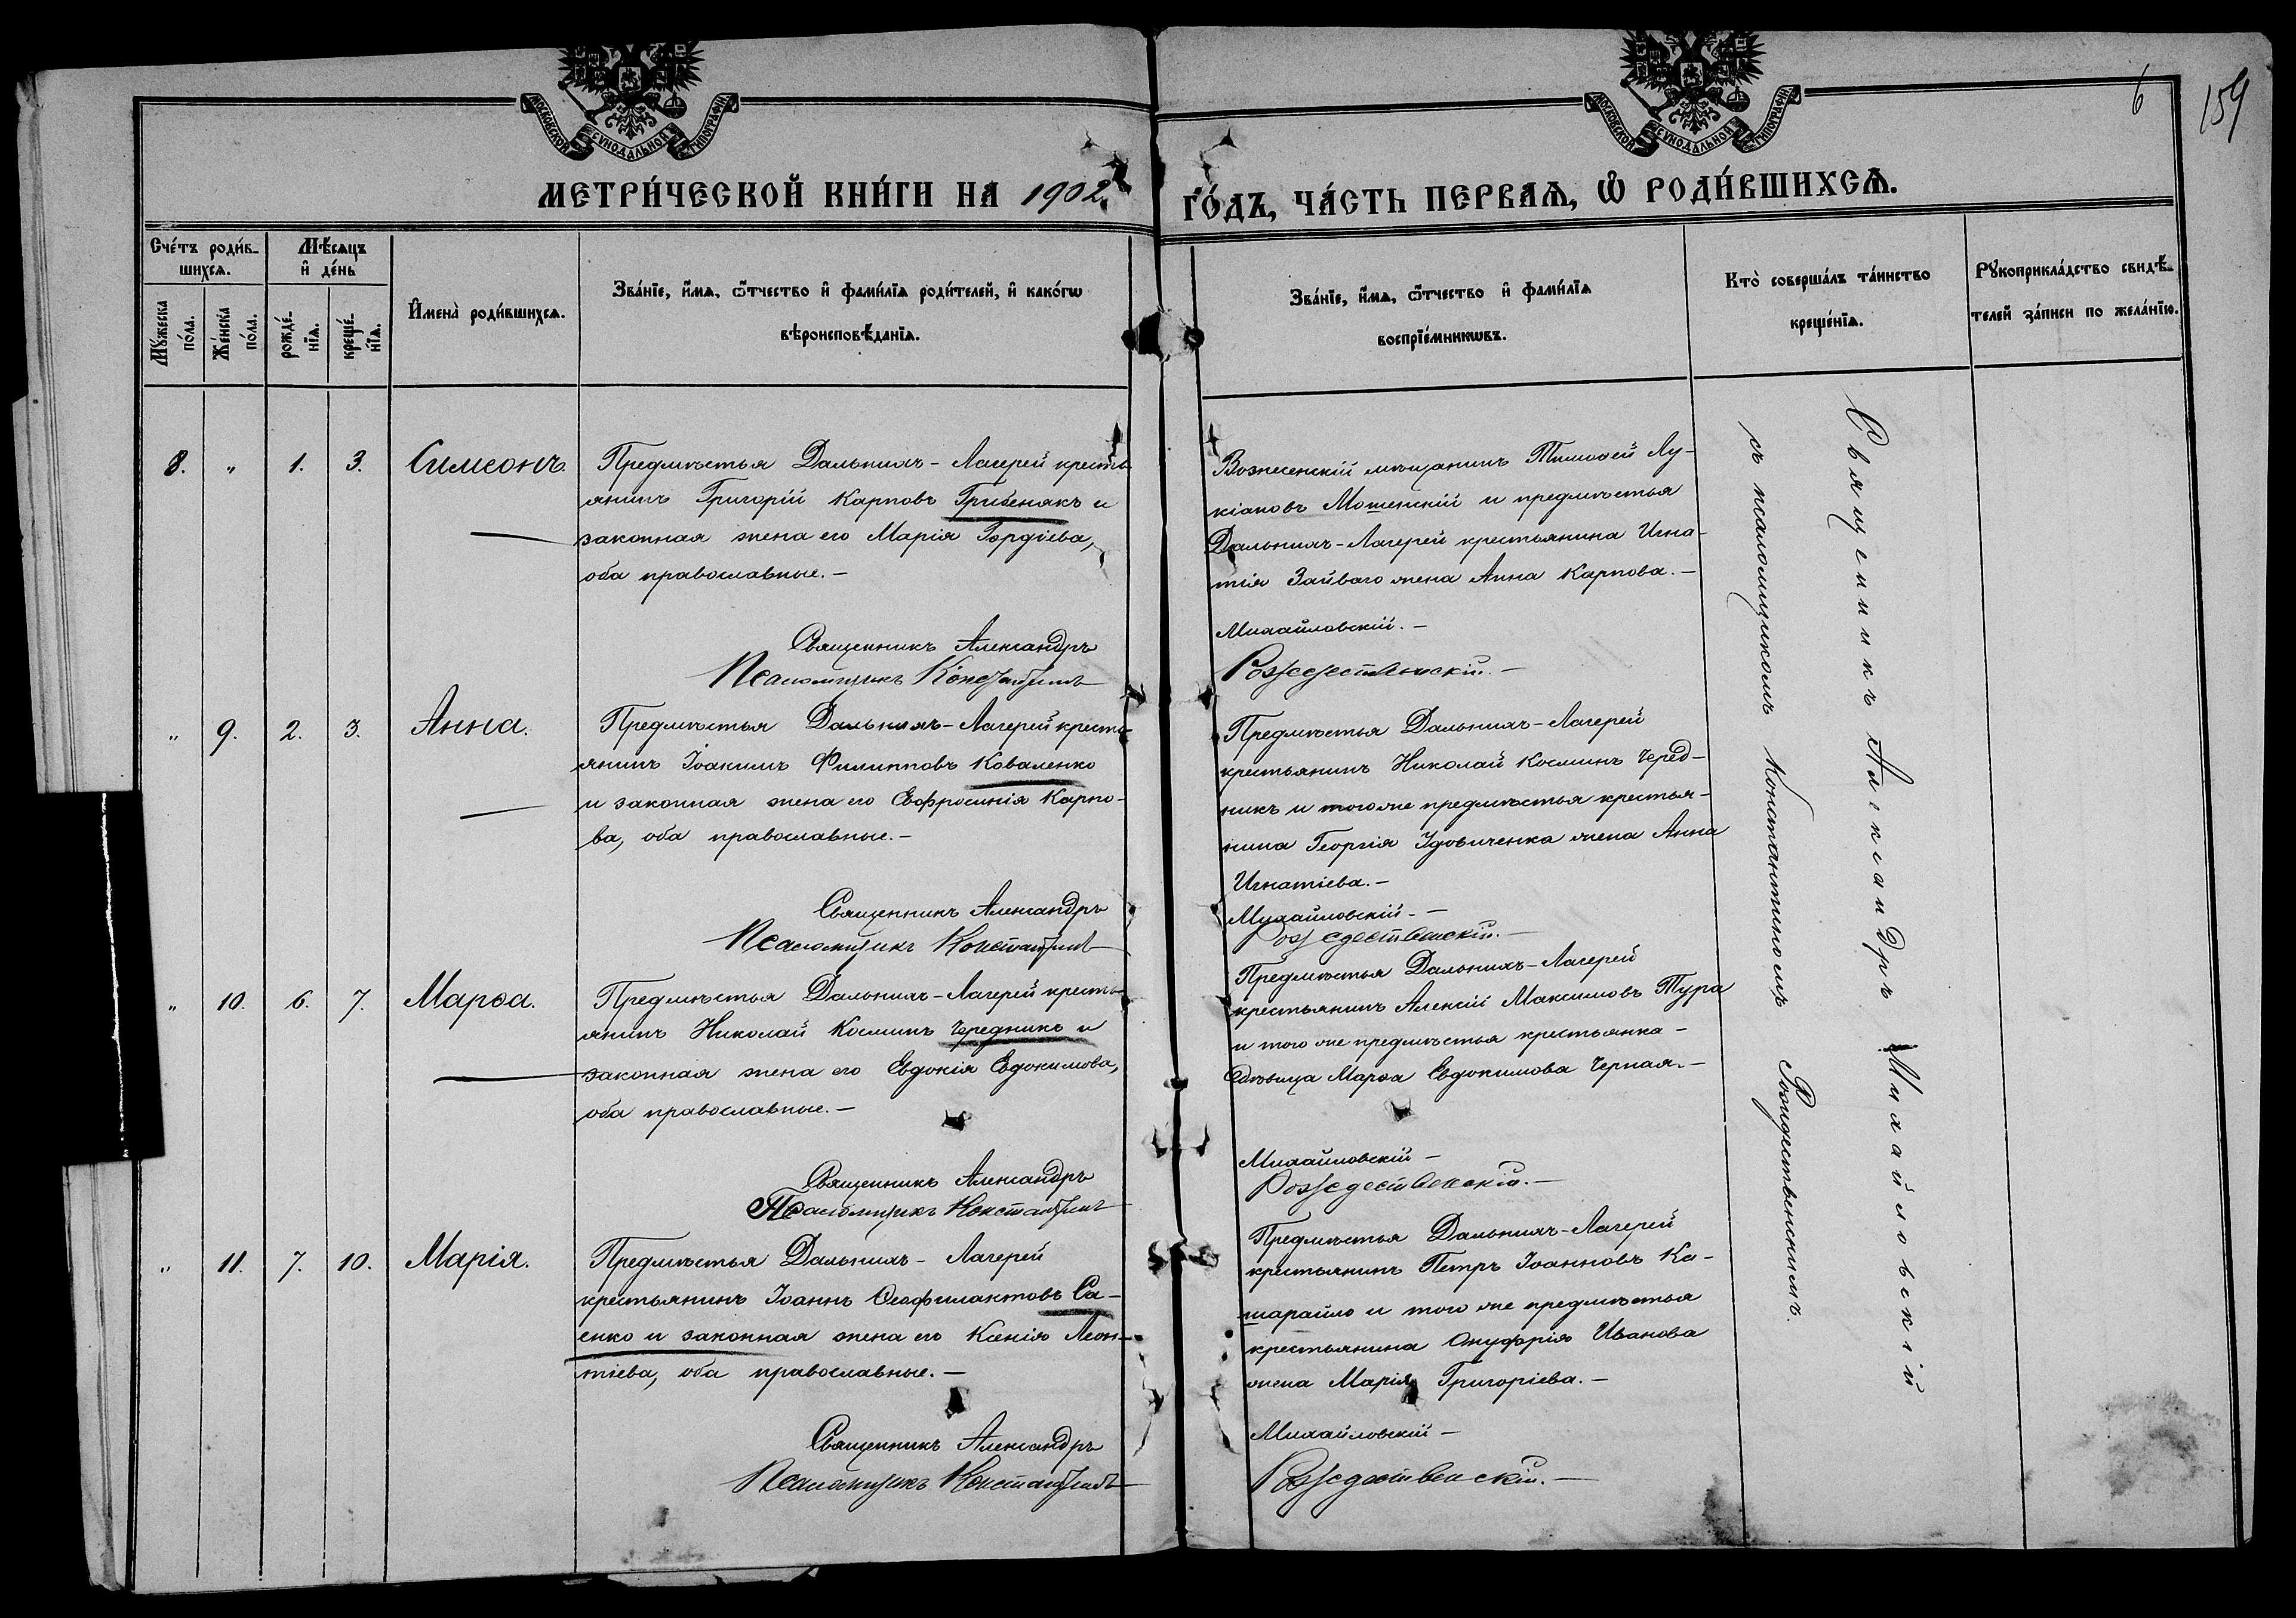 6
159
МОСКОВСКОЙ СѴНОДАЛЬНОЙ ТИПОГРАФІИ
МОСКОВСКОЙ СѴНОДАЛЬНОЙ ТИПОГРАФІИ
МЕТРИ́ЧЕСКОЙ КНИ́ГИ НА 1902.
ГО́ДЪ, ЧА́СТЬ ПЕРВАѦ, Ѡ РОДИ́ВШИХСѦ.
Сче́тъ роди́в-
шихсѧ.
Мꙋ́жеска
по́ла.
Же́нска
по́ла.
Мѣ́сѧцъ
и҆ де́нь
рожде́-
нїѧ.
креще́-
нїѧ.
И҆мена̀ роди́вшихсѧ.
Зва́нїе, и҆́мѧ, ѻ҆́тчество и҆ фами́лїѧ роди́телей, и҆ како́гѡ
вѣроисповѣ́данїѧ.
Зва́нїе, и҆́мѧ, ѻ҆́тчество и҆ фами́лїѧ
воспрїе́мникѡвъ.
Кто̀ соверша́лъ та́инство
креще́нїѧ.
Рꙋкоприкла́дство свидѣ́-
телей за́писи по жела́нїю.
8. „ 1. 3. Симеонъ.
Предмѣстья Дальнихъ-Лагерей кресть-
янинъ Григорій Карповъ Грибенякъ и
законная жена его Марія Гордіева,
оба православные.-
Священникъ Александръ
Псаломщикъ Константинъ
Вознесенскій мѣщанинъ Тимоѳей Лу-
кіановъ Мошенскій и предмѣстья
Дальнихъ-Лагерей крестьянина Игна-
тія Зайваго жена Анна Карпова.-
Михайловскій.-
Рождественскій.-
„ 9. 2. 3. Анна.
Предмѣстья Дальнихъ-Лагерей кресть-
янинъ Іоакимъ Филипповъ Коваленко
и законная жена его Евфросинія Карпо-
ва, оба православные.-
Священникъ Александръ
Псаломщикъ Константинъ
Предмѣстья Дальнихъ-Лагерей
крестьянинъ Николай Косминъ Черед-
никъ и того же предмѣстья крестья-
нина Георгія Удовиченка жена Анна
Игнатіева.-
Михайловскій.-
Рождественскій.-
„ 10. 6. 7. Марѳа.
Предмѣстья Дальнихъ-Лагерей кресть-
янинъ Николай Косминъ Чередникъ и
законная жена его Евдокія Евдокимова,
оба православные.-
Священникъ Александръ
Псаломщикъ Константинъ
Предмѣстья Дальнихъ-Лагерей
крестьянинъ Алексій Максимовъ Тура
и того же предмѣстья крестьянка-
дѣвица Марѳа Евдокимова Черная.-
Михайловскій-
Рождественскій.-
„ 11. 7. 10. Марія.
Предмѣстья Дальнихъ-Лагерей
крестьянинъ Іоаннъ Ѳеофилактовъ Са-
енко и законная жена его Ксенія Леон-
тіева, оба православные.-
Священникъ Александръ
Псаломщикъ Константинъ
Предмѣстья Дальнихъ-Лагерей
крестьянинъ Петръ Іоанновъ Ка-
шарайло и того же предмѣстья
крестьянина Онуфрія Иванова
жена Марія Григоріева.-
Михайловскій-
Рождественскій.-
Священникъ Александръ Михайловскій
съ псаломщикомъ Константиномъ Рождественскимъ.